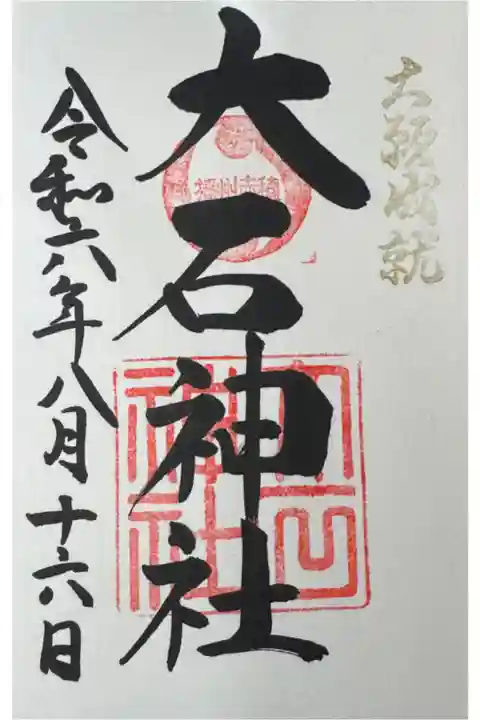 大願成就
大石神社
令和六年八月十六日
大石
神社